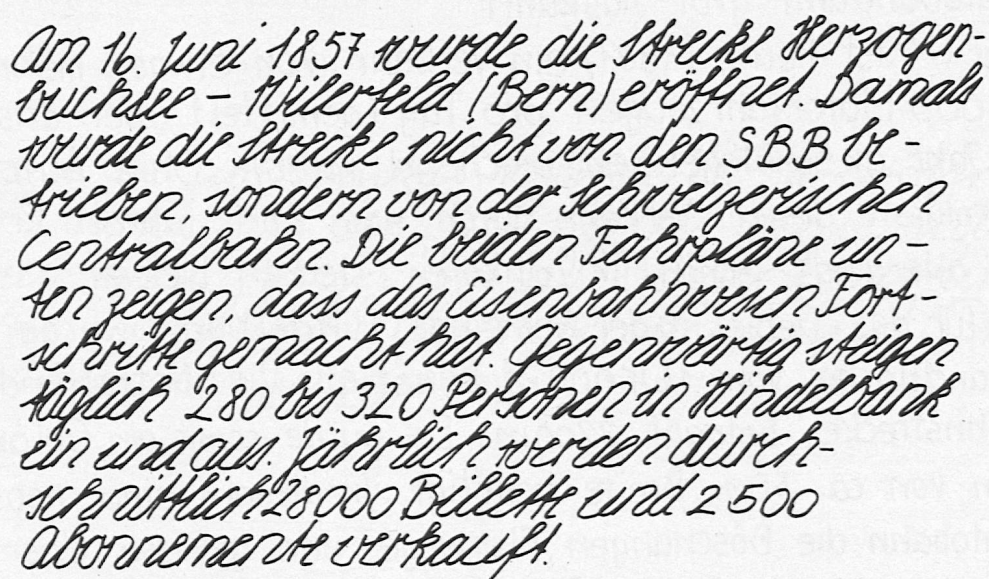 Am 16. Juni 1857 wurde die Strecke Herzogen-
buchsee – Wilerfeld (Bern) eröffnet. Damals
wurde die Strecke nicht von den SBB be-
trieben, sondern von der Schweizerischen
Centralbahn. Die beiden Fahrpläne un-
ten zeigen, dass das Eisenbahnwesen Fort-
schritte gemacht hat. Gegenwärtig steigen
täglich 280 bis 320 Personen in Hindelbank
ein und aus. Jährlich werden durch-
schnittlich 28000 Billette und 2500
Abonnemente verkauft.